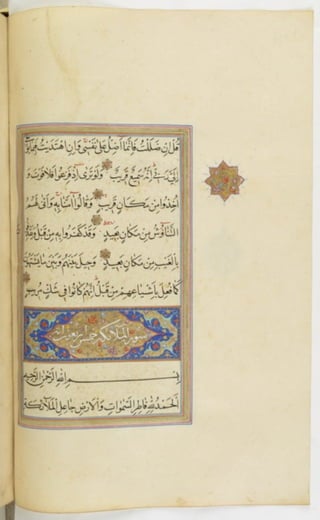 قل ان ضللت فانما اضل على نفسي وان اهتديت فبما يوحي
الي ربي انه سميع قريب ولو ترى اذ فزعوا فلا فوت و
اخذوا من مكان قريب وقالوا امنا به وانى لهم
التناوش من مكان بعيد وقد كفروا به من قبل ويقذفون
بالغيب من مكان بعيد وحيل بينهم وبين ما يشتهون
كما فعل باشياعهم من قبل انهم كانوا في شك مريب
سورة الملائكة خمس واربعون
بسم الله الرحمن الرحيم
الحمد لله فاطر السموات والارض جاعل الملائكة